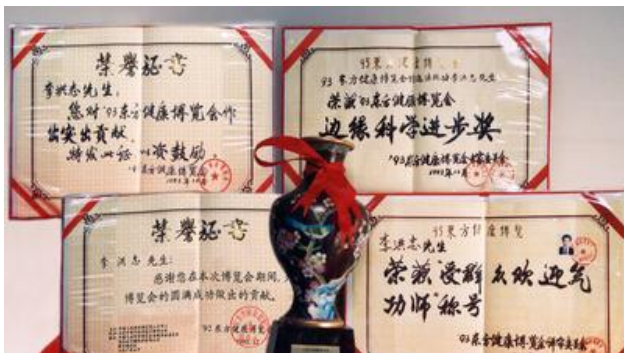 荣誉证书
李洪志先生:
您对'93东方健康博览会作
出突出贡献,
特发此证 以资鼓励。
93东方健康博览会
'93东方健康博览会的气功师李洪志先生
荣获'93东方健康博览会
边缘科学进步奖
'93东方健康博览会
1993年12月
荣誉证书
李洪志先生:
感谢您在本次博览会期间,
博览会的圆满成功做出的贡献。
'93东方健康博览
93东方健康博览
李洪志先生
荣获"受群众欢迎气
功师"称号
'93东方健康博览会评审委员会